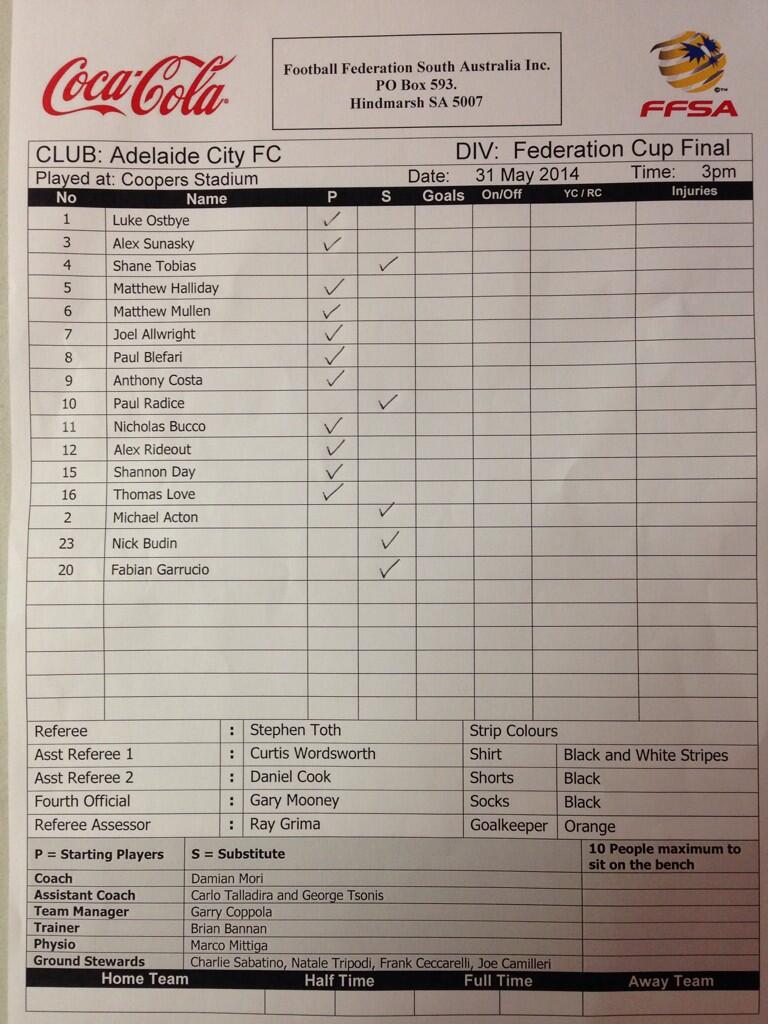 Coca-Cola
Football Federation South Australia Inc.
PO Box 593.
Hindmarsh SA 5007
FFSA
CLUB: Adelaide City FC DIV: Federation Cup Final
Played at: Coopers Stadium Date: 31 May 2014 Time: 3pm
No Name P S Goals On/Off YC / RC Injuries
1 Luke Ostbye ✓
3 Alex Sunasky ✓
4 Shane Tobias ✓
5 Matthew Halliday ✓
6 Matthew Mullen ✓
7 Joel Allwright ✓
8 Paul Blefari ✓
9 Anthony Costa ✓
10 Paul Radice ✓
11 Nicholas Bucco ✓
12 Alex Rideout ✓
15 Shannon Day ✓
16 Thomas Love ✓
2 Michael Acton ✓
23 Nick Budin ✓
20 Fabian Garrucio ✓
Referee : Stephen Toth Strip Colours
Asst Referee 1 : Curtis Wordsworth Shirt Black and White Stripes
Asst Referee 2 : Daniel Cook Shorts Black
Fourth Official : Gary Mooney Socks Black
Referee Assessor : Ray Grima Goalkeeper Orange
P = Starting Players S = Substitute 10 People maximum to
sit on the bench
Coach Damian Mori
Assistant Coach Carlo Talladira and George Tsonis
Team Manager Garry Coppola
Trainer Brian Bannan
Physio Marco Mittiga
Ground Stewards Charlie Sabatino, Natale Tripodi, Frank Ceccarelli, Joe Camilleri
Home Team Half Time Full Time Away Team